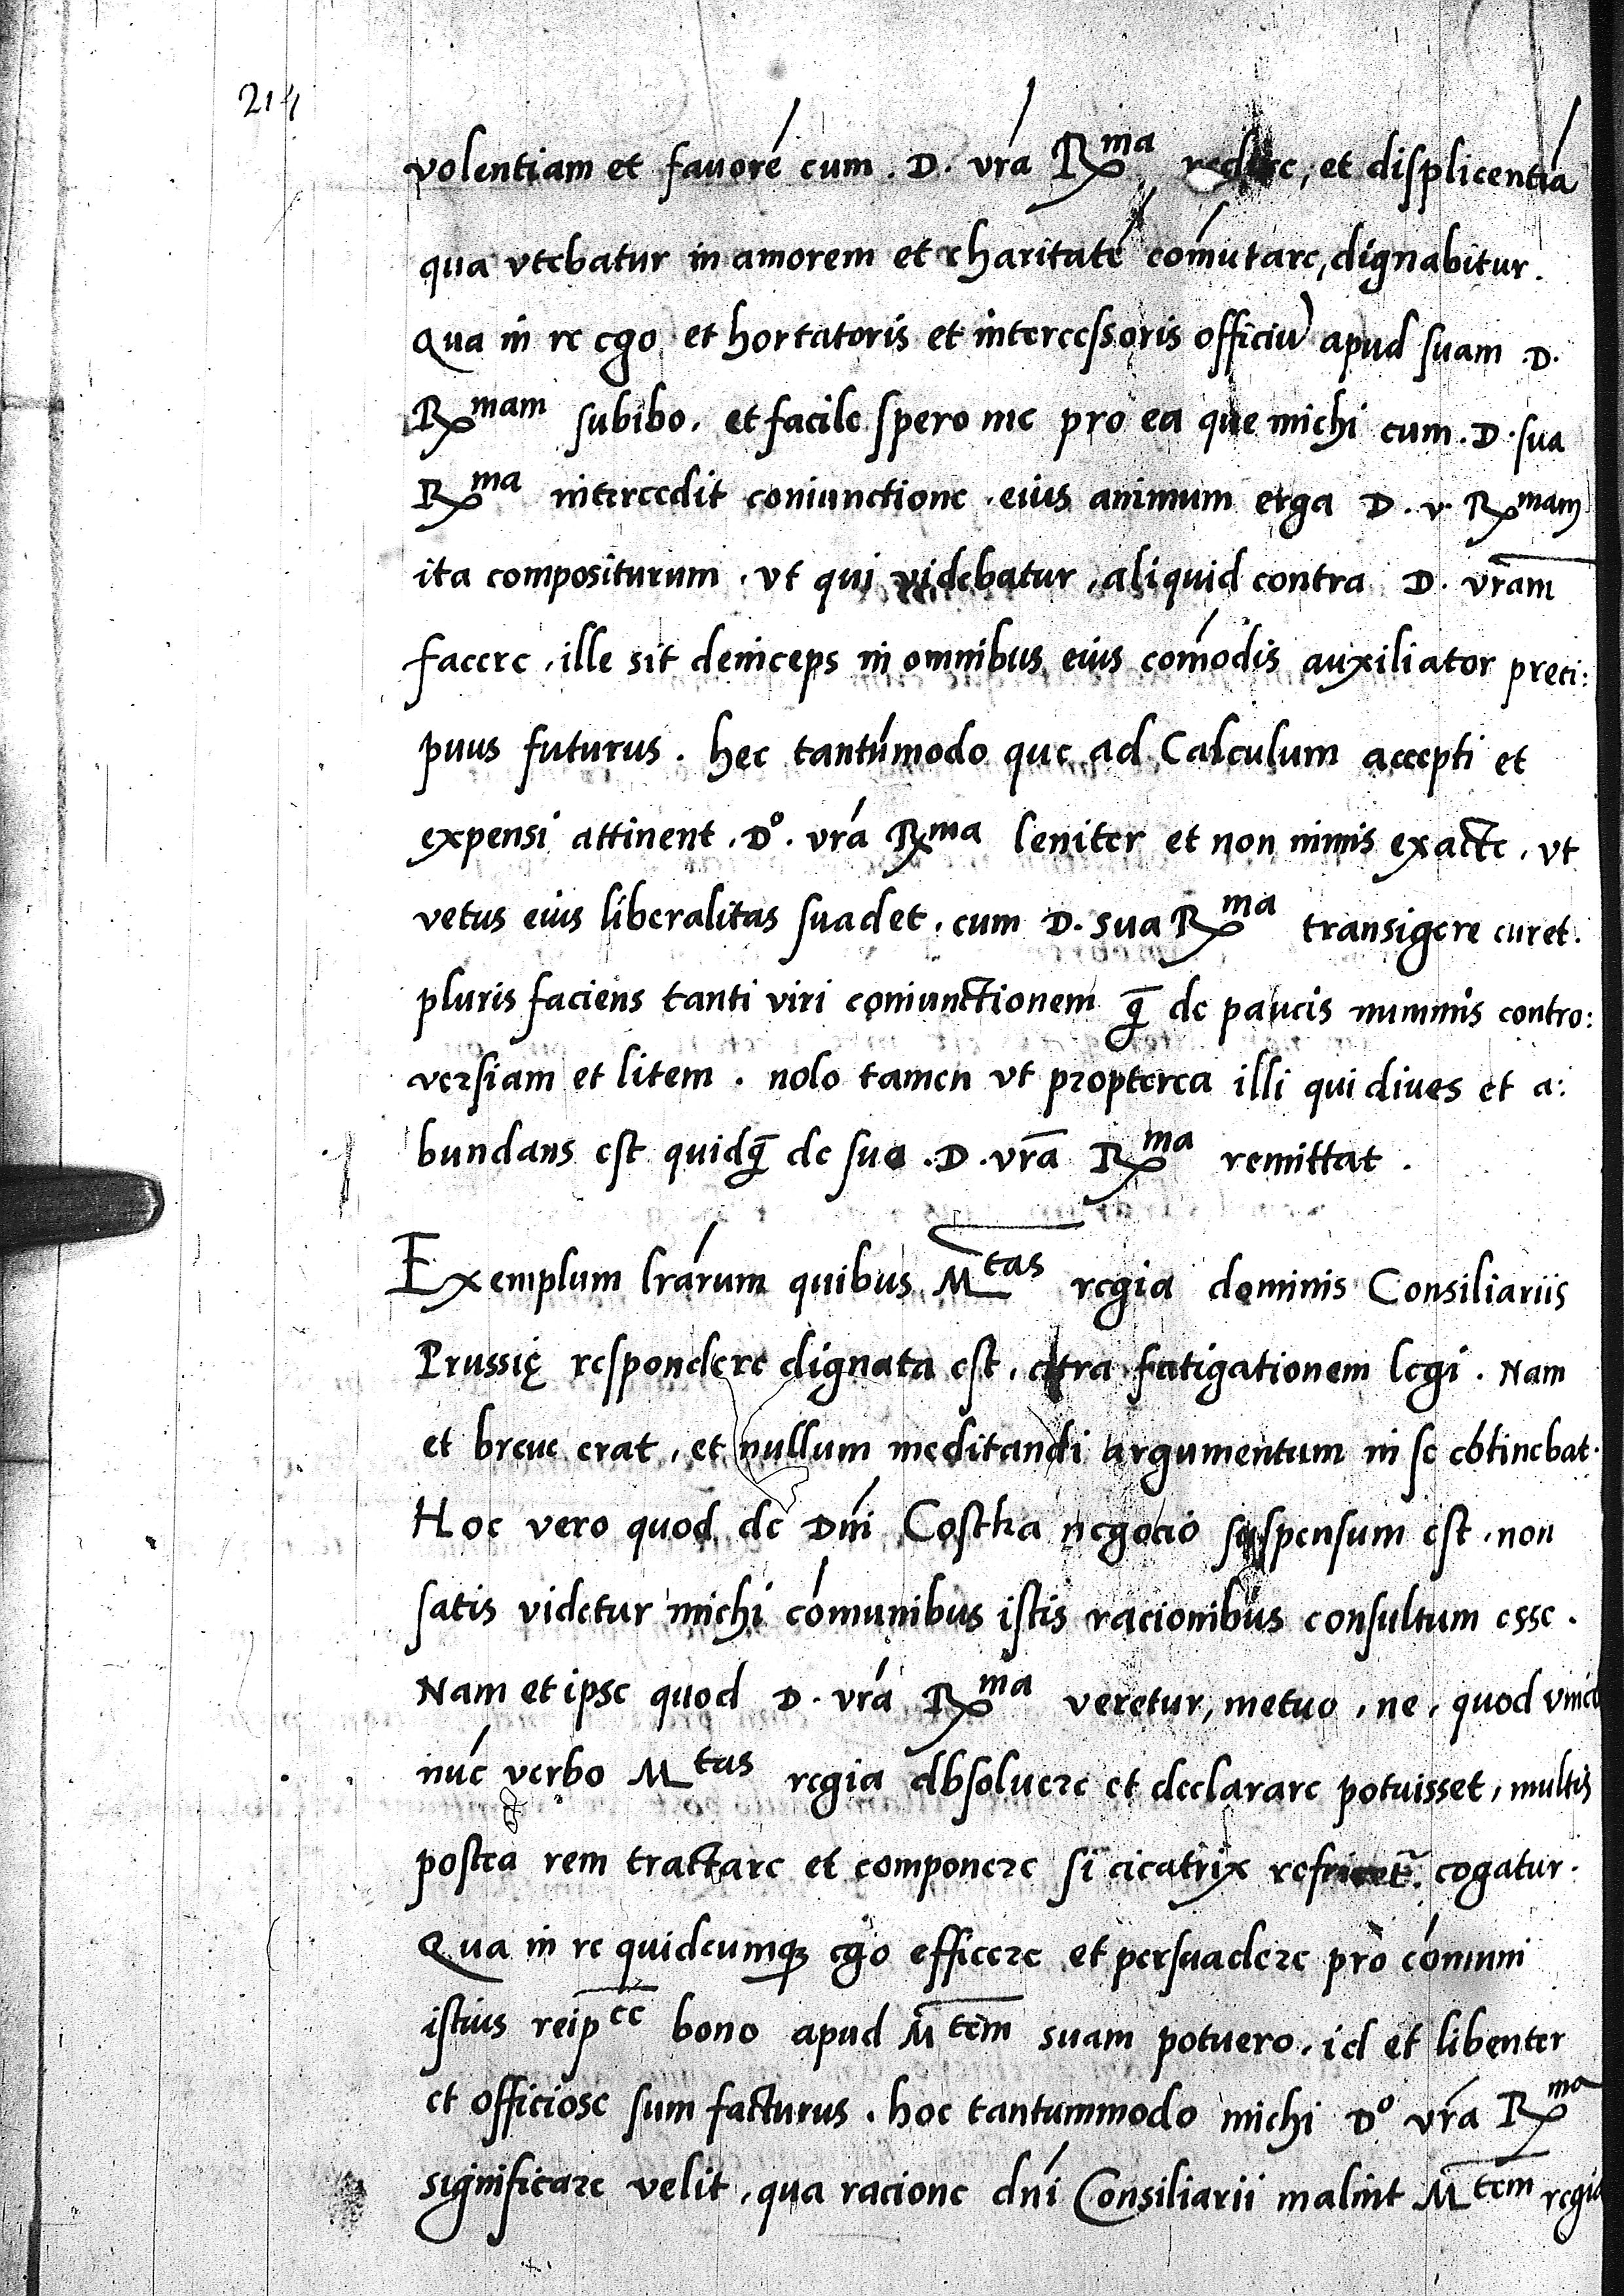 214
volentiam et fauorē cum . D. vrā R^ma redire, et displicentiā
qua vtebatur in amorem et charitatē cōmutare, dignabitur.
Qua in re ego et hortatoris et intercessoris officiū apud suam .D.
R^mam subibo. et facile spero me pro ea que michi cum . D. sua
R^ma intercedit coniunctione . eius animum erga D. v. R^mam
ita compositurum . vt qui videbatur, aliquid contra D. vrām
facere, ille sit deinceps in omnibus eius cōmodis auxiliator preci:
puus futurus . hec tantūmodo que ad Calculum accepti et
expensi attinent . D^o. vrā R^ma leniter et non nimis exacte, vt
vetus eius liberalitas suadet . cum D. sua R^ma transigere curet.
pluris faciens tanti viri coniunctionem q̄ de paucis nummis contro:
versiam et litem . nolo tamen vt propterea illi qui diues et a:
bundans est quidq̄ de suo .D. vrā R^ma remittat .
Exemplum lrārum quibus M^tas regia dominis Consiliariis
Prussię respondere dignata est, citra fatigationem legi . Nam
et breue erat, et nullum meditandi argumentum in se cōtinebat.
Hoc vero quod de Dnī Costka negocio suspensum est, non
satis videtur michi cōmunibus istis racionibus consultum esse .
Nam et ipse quod D. vrā R^ma veretur, metuo, ne, quod vnico
nūc verbo M^tas regia absoluere et declarare potuisset, multis
postea rem tractare et componere si cicatrix refricet̄. cogatur.
Qua in re quidcumq; ego efficere et persuadere pro cōmuni
istius reip^ce bono apud M^tem suam potuero, id et libenter
et officiose sum facturus . hoc tantummodo michi D^o vrā R^ma
significare velit, qua racione dnī Consiliarii malint M^tem regia